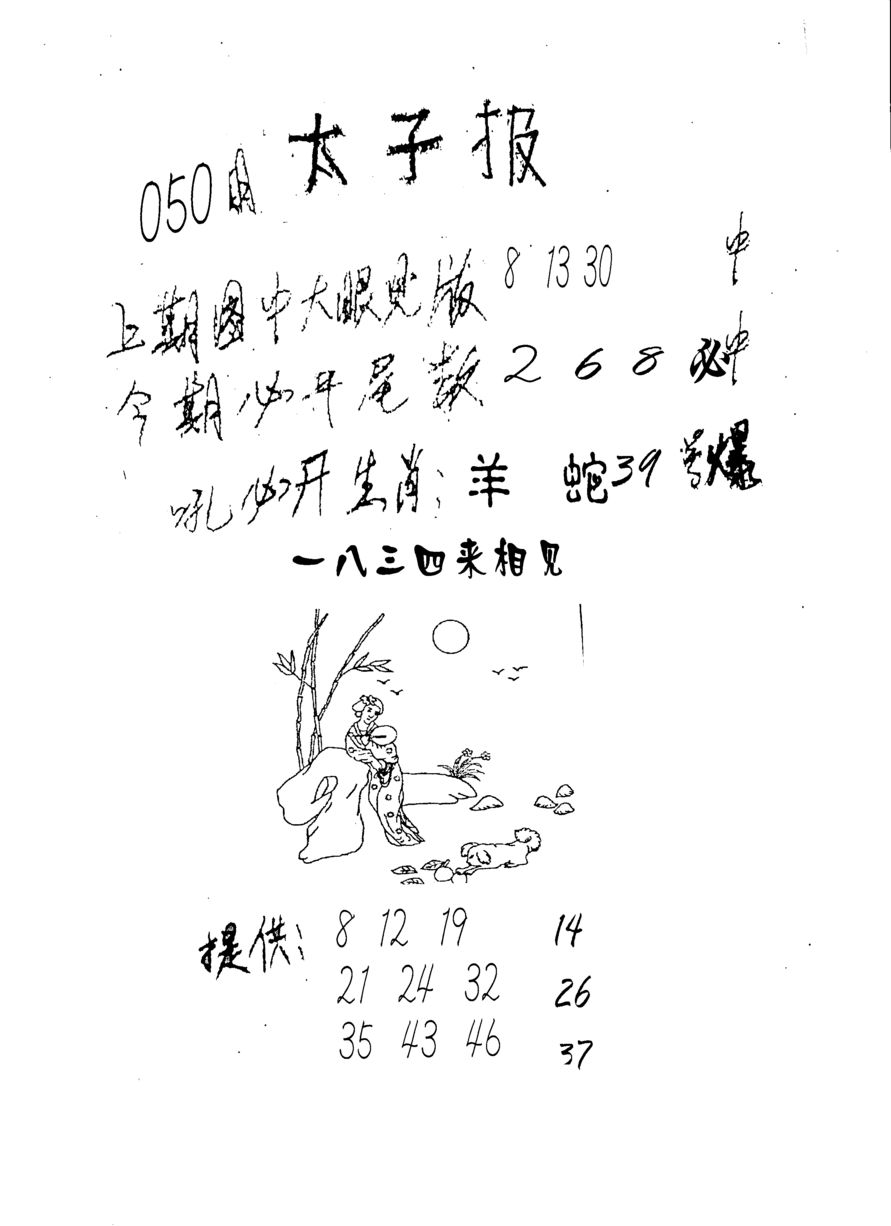 太子报
050期
上期图中大眼见版 8 13 30 中
今期必开尾数 2 6 8 必中
吼必开生肖: 羊 蛇 39 号爆
一八三四来相见
提供: 8 12 19 14
21 24 32 26
35 43 46 37